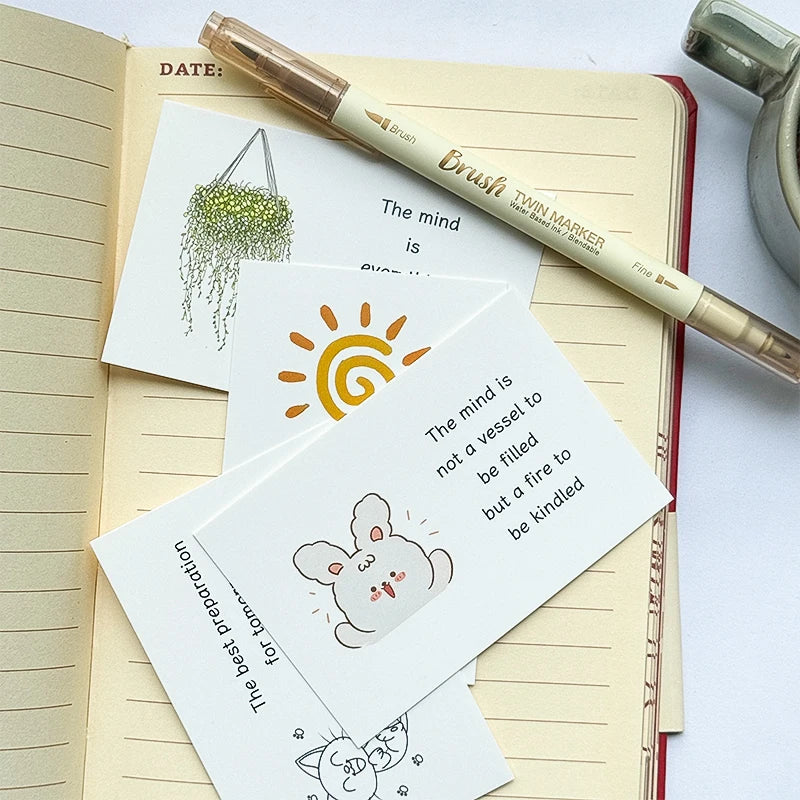 DATE:
Brush
Brush
TWIN MARKER
Water Based Ink / Blendable
Fine
The mind
is
The mind is
not a vessel to
be filled
but a fire to
be kindled
The best preparation
for